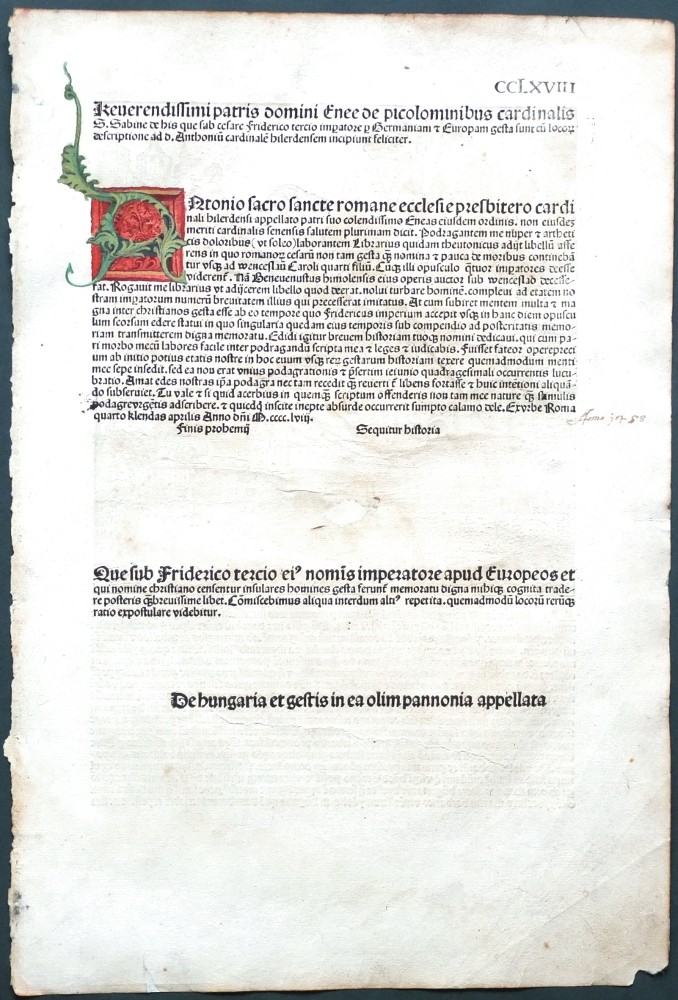 CCLXVIII
Reuerendissimi patris domini Enee de picolominibus cardinalis
S. Sabine de his que sub cesare Friderico tercio imꝑatore ꝑ Germaniam ⁊ Europam gesta sunt cū locoꝝ
descriptione ad d. Anthoniū cardinalē hilerdensem incipiunt feliciter.
ANtonio sacro sancte romane ecclesie presbitero cardi
nali hilerdensi appellato patri suo colendissimo Eneas eiusdem ordinis. non eiusdez
meriti cardinalis senensis salutem plurimam dicit. Podragantem me nuper ⁊ artheti
cis doloribus (vt soleo) laborantem Librarius quidam theutonicus adijt libellū affe
rens in quo romanoꝝ cesarū non tam gesta qꝫ nomina ⁊ pauca de moribus continebā
tur vsqꝫ ad wenceslaū Caroli quarti filiū. Cuiqꝫ illi opusculo qͣtuor imꝑatores deesse
viderenť. Nā Beneuenustus himolensis eius operis auctor sub wenceslao decesse-
rat. Rogauit me librarius vt adijcerem libello quod deerat. nolui turbare hominē. compleui ad etatem no
stram imꝑatorum numerū breuitatem illius qui precesserat imitatus. At cum subiret mentem multa ⁊ ma
gna inter christianos gesta esse ab eo tempore quo Fridericus imperium accepit vsqꝫ in hanc diem opuscu
lum seorsum edere statui in quo singularia quedam eius temporis sub compendio ad posteritatis memo-
riam transmitterem digna memoratu. Edidi igitur breuem historiam tuoqꝫ nomini dedicaui. qui cum pa-
ri morbo mecū labores facile inter podragandū scripta mea ⁊ leges ⁊ iudicabis. Fuisset fateor operepreci
um ab initio potius etatis nostre in hoc euum vsqꝫ reꝝ gestarum historiam texere quemadmodum menti
mee sepe insedit. sed ea non erat vnius podagrationis ⁊ ꝑsertim ieiunio quadragesimali occurrentis lucu-
bratio. Amat edes nostras ip̄a podagra nec tam recedit qꝫ reuerti ⁊ libens fortasse ⁊ huic intētioni aliquā-
do subseruiet. Tu vale ⁊ si quid acerbius in quemqꝫ scriptum offenderis non tam mee nature qꝫ stimulis
podagre vrgentis adscribere. ⁊ quicqd inscite inepte absurde occurrerit sumpto calamo dele. Ex vrbe Roma
quarto klendas aprilis Anno dn̄i M. cccc. lviij.
Finis prohemij Sequitur historia
Que sub Friderico tercio eiꝰ nomīs imperatore apud Europeos et
qui nomine christiano censentur insulares homines gesta ferunť memoratu digna mihiqꝫ cognita trade-
re posteris qꝫbreuissime libet. Cōmiscebimus aliqua interdum altiꝰ repetita. quemadmodū locorū rerūqꝫ
ratio expostulare videbitur.
De hungaria et gestis in ea olim pannonia appellata